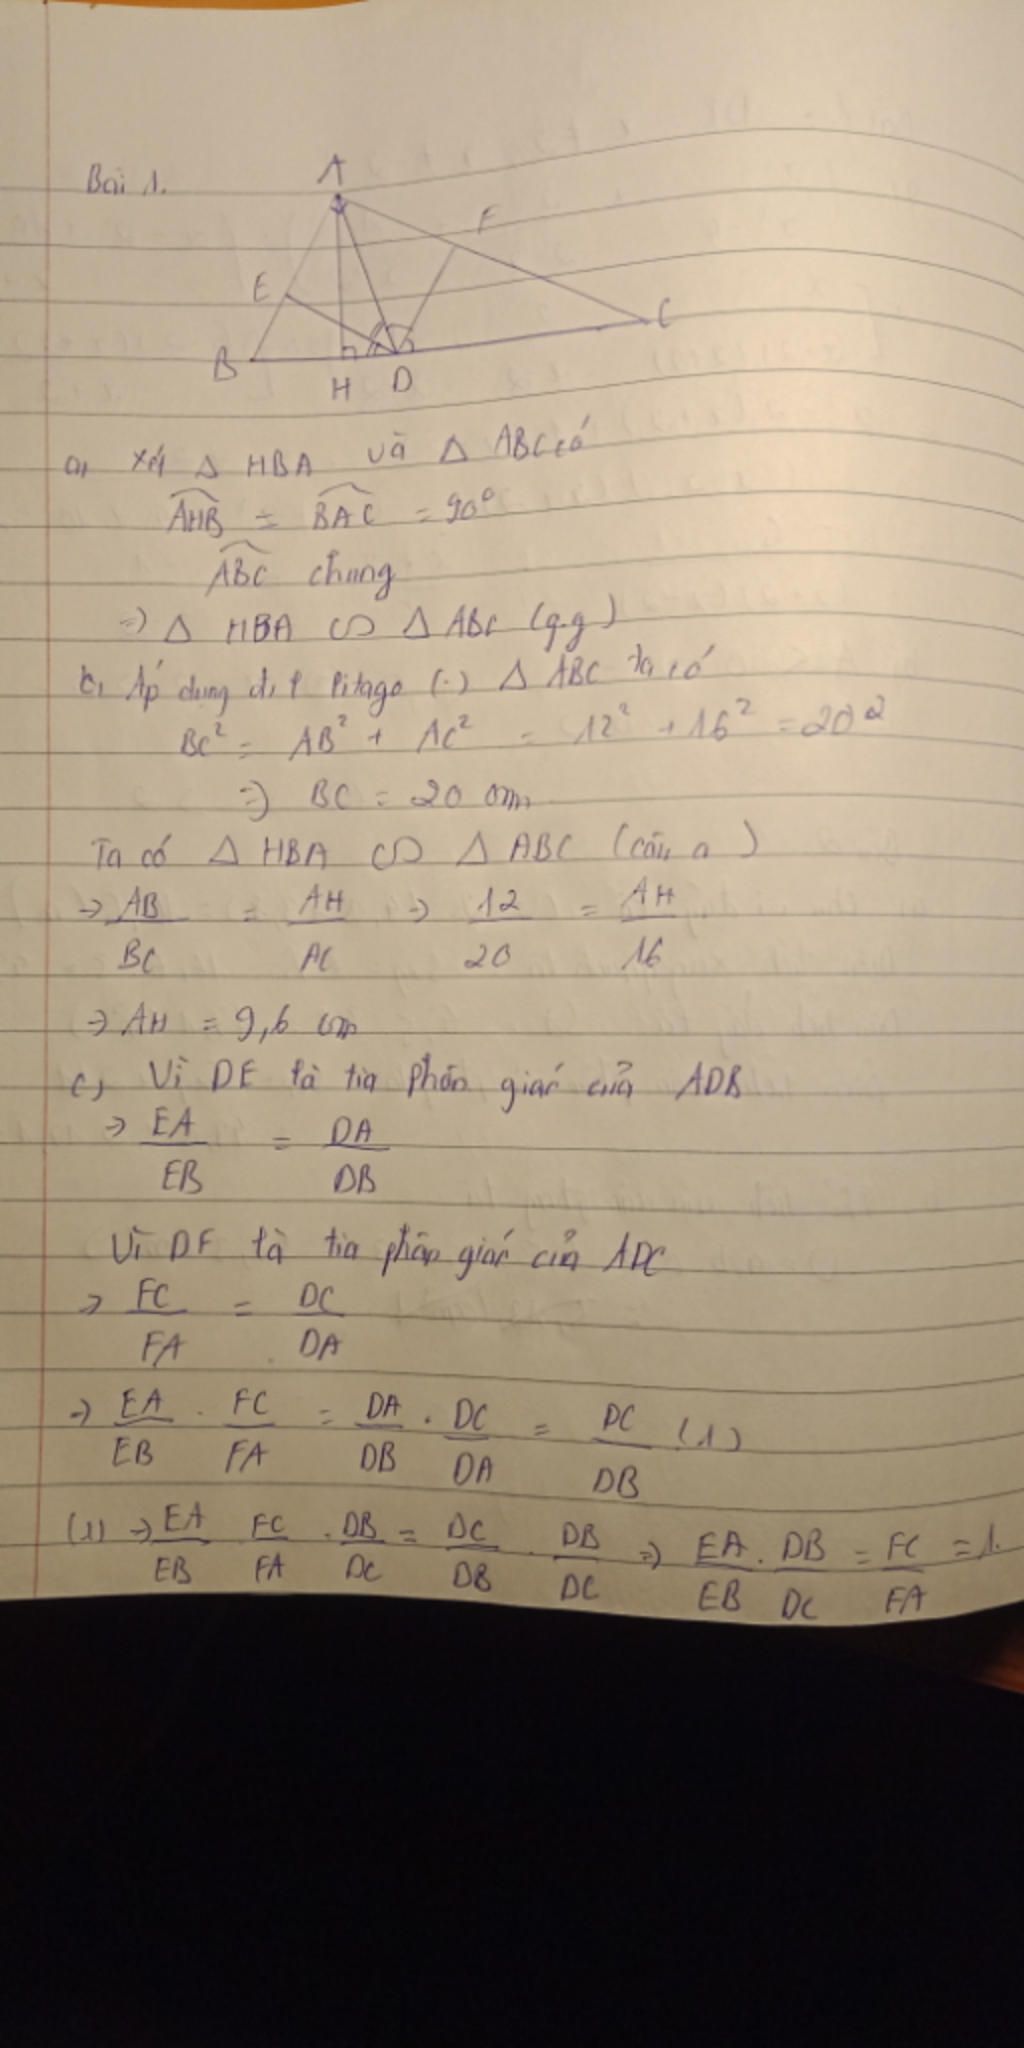 Bài 1.
A
F
E
C
B
H D
a, Xét Δ HBA và Δ ABC có
AHB = BAC = 90°
ABC chung
=> Δ HBA ∽ Δ ABC (g.g)
b, Áp dụng đ.l Pitago (.) Δ ABC ta có
BC² = AB² + AC² = 12² + 16² = 20²
=> BC = 20 cm
Ta có Δ HBA ∽ Δ ABC (câu a)
→ AB/BC = AH/AC → 12/20 = AH/16
→ AH = 9,6 cm
c, Vì DE là tia phân giác của ADB
→ EA/EB = DA/DB
Vì DF là tia phân giác của ADC
→ FC/FA = DC/DA
→ EA/EB . FC/FA = DA/DB . DC/DA = DC/DB (1)
(1) → EA/EB FC/FA . DB/DC = DC/DB . DB/DC => EA/EB . DB/DC = FC/FA = 1.